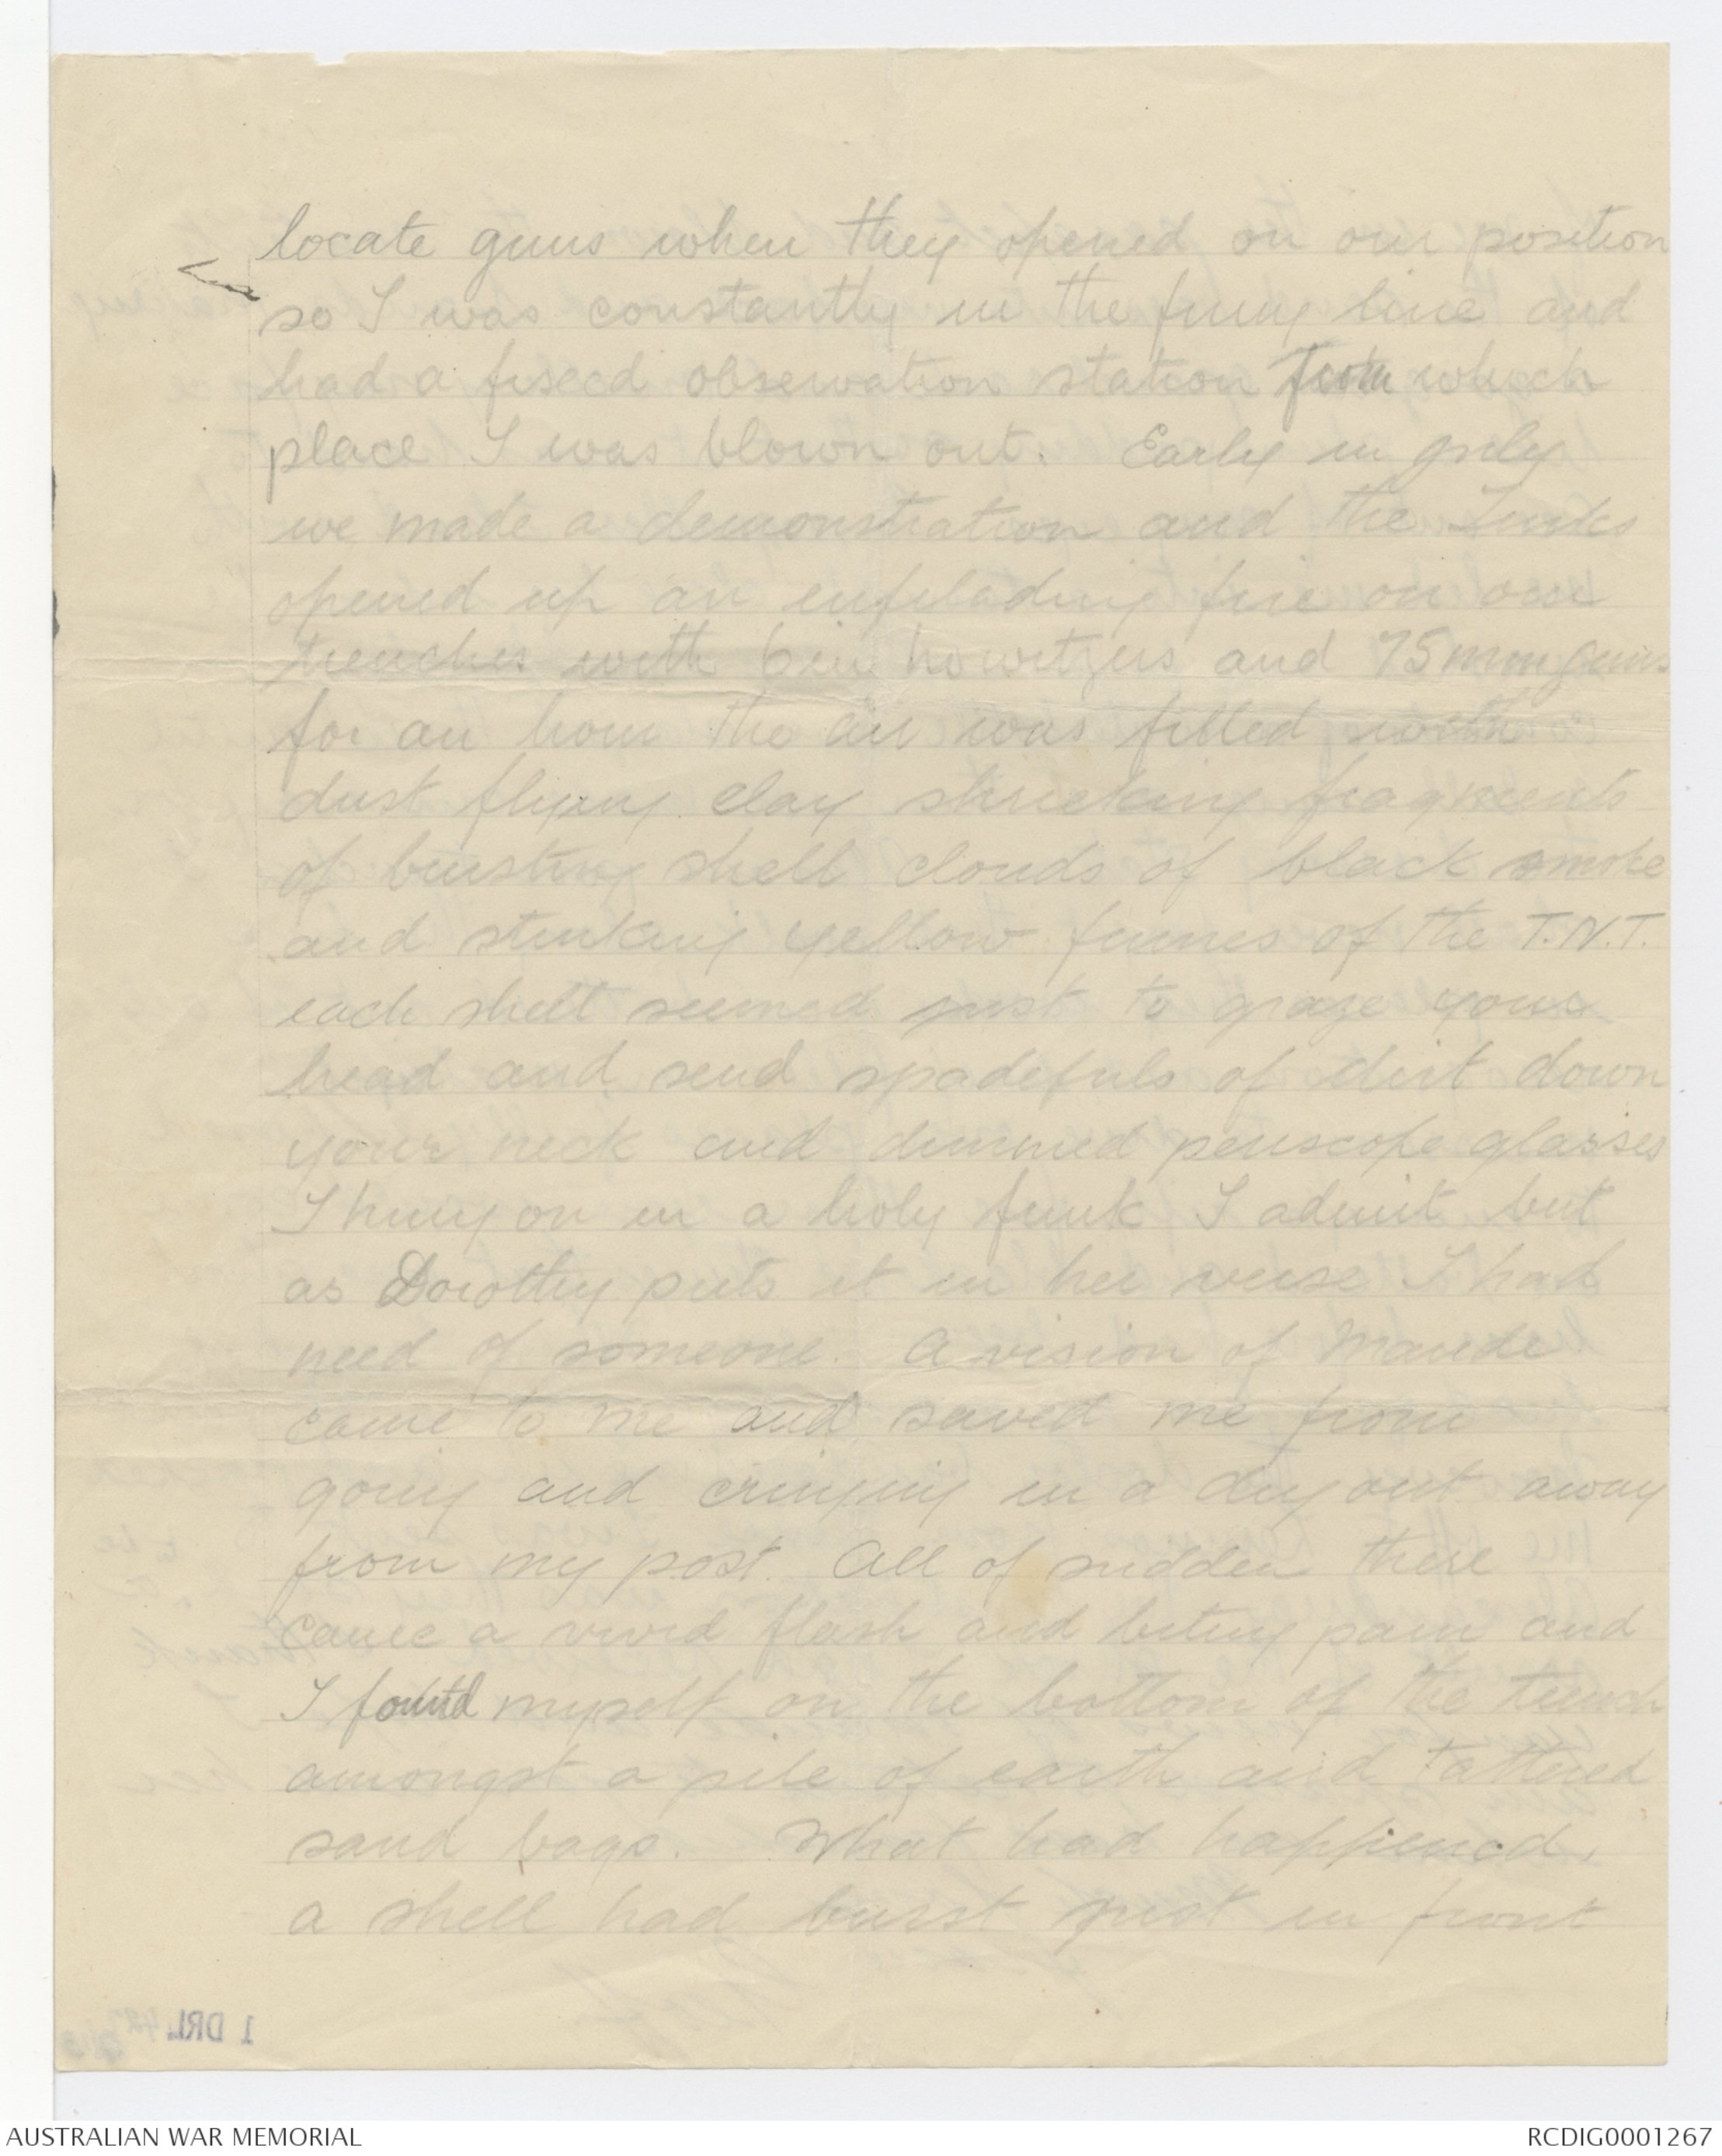 locate guns when they opened on our position
so I was constantly in the firing line and
had a fixed observation station from which
place I was blown out. Early in July
we made a demonstration and the Turks
opened up an enfilading fire on our
trenches with 6in howitzers and 75mm guns
for an hour the air was filled with
dust flying clay shrieking fragments
of bursting shell clouds of black smoke
and stinking yellow fumes of the T.N.T.
each shell seemed just to graze your
head and send spadefuls of dirt down
your neck and dimmed periscope glasses
I hung on in a holy funk I admit but
as Dorothy puts it in her verse I had
need of someone. A vision of Maude
came to me and saved me from
going and cringing in a dug out away
from my post. All of sudden there
came a vivid flash and biting pain and
I found myself on the bottom of the trench
amongst a pile of earth and tattered
sand bags. What had happened,
a shell had burst just in front
1 DRL
AUSTRALIAN WAR MEMORIAL
RCDIG0001267